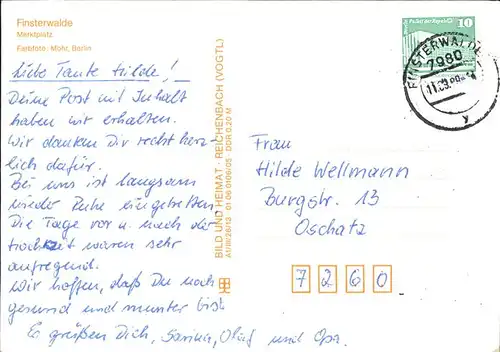 Finsterwalde
Marktplatz
Farbfoto: Mohr, Berlin
Liebe Tante Hilde!
Deine Post mit Inhalt
haben wir erhalten.
Wir danken Dir recht herz-
lich dafür.
Bei uns ist langsam
wieder Ruhe eingetreten
Die Tage vor u. nach der
Hochzeit waren sehr
aufregend.
Wir hoffen, daß Du noch
gesund und munter bist.
Es grüßen Dich, Olaf und Opa.
BILD UND HEIMAT · REICHENBACH (VOGTL)
A1/B 01 06 0106/05 DDR 0,20 M
10
FINSTERWALDE
7980
y
Frau
Hilde Wellmann
Burgstr. 13
Oschatz
7260